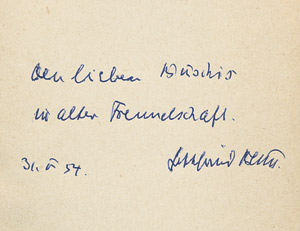 Den lieben Buschis
in alter Freundschaft.
31. V 54. Gottfried Benn.